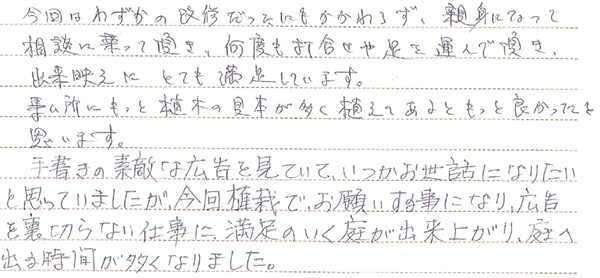 今回はわずかの改修だったにもかかわらず、親身になって
相談に乗って頂き、何度も打合せや足を運んで頂き、
出来映えにとても満足しています。
事ム所にもっと植木の見本が多く植えてあるともっと良かったと
思います。
手書きの素敵な広告を見ていて、いつかお世話になりたい
と思っていましたが、今回植栽で、お願いする事になり、広告
を裏切らない仕事に、満足のいく庭が出来上がり、庭へ
出る時間が多くなりました。